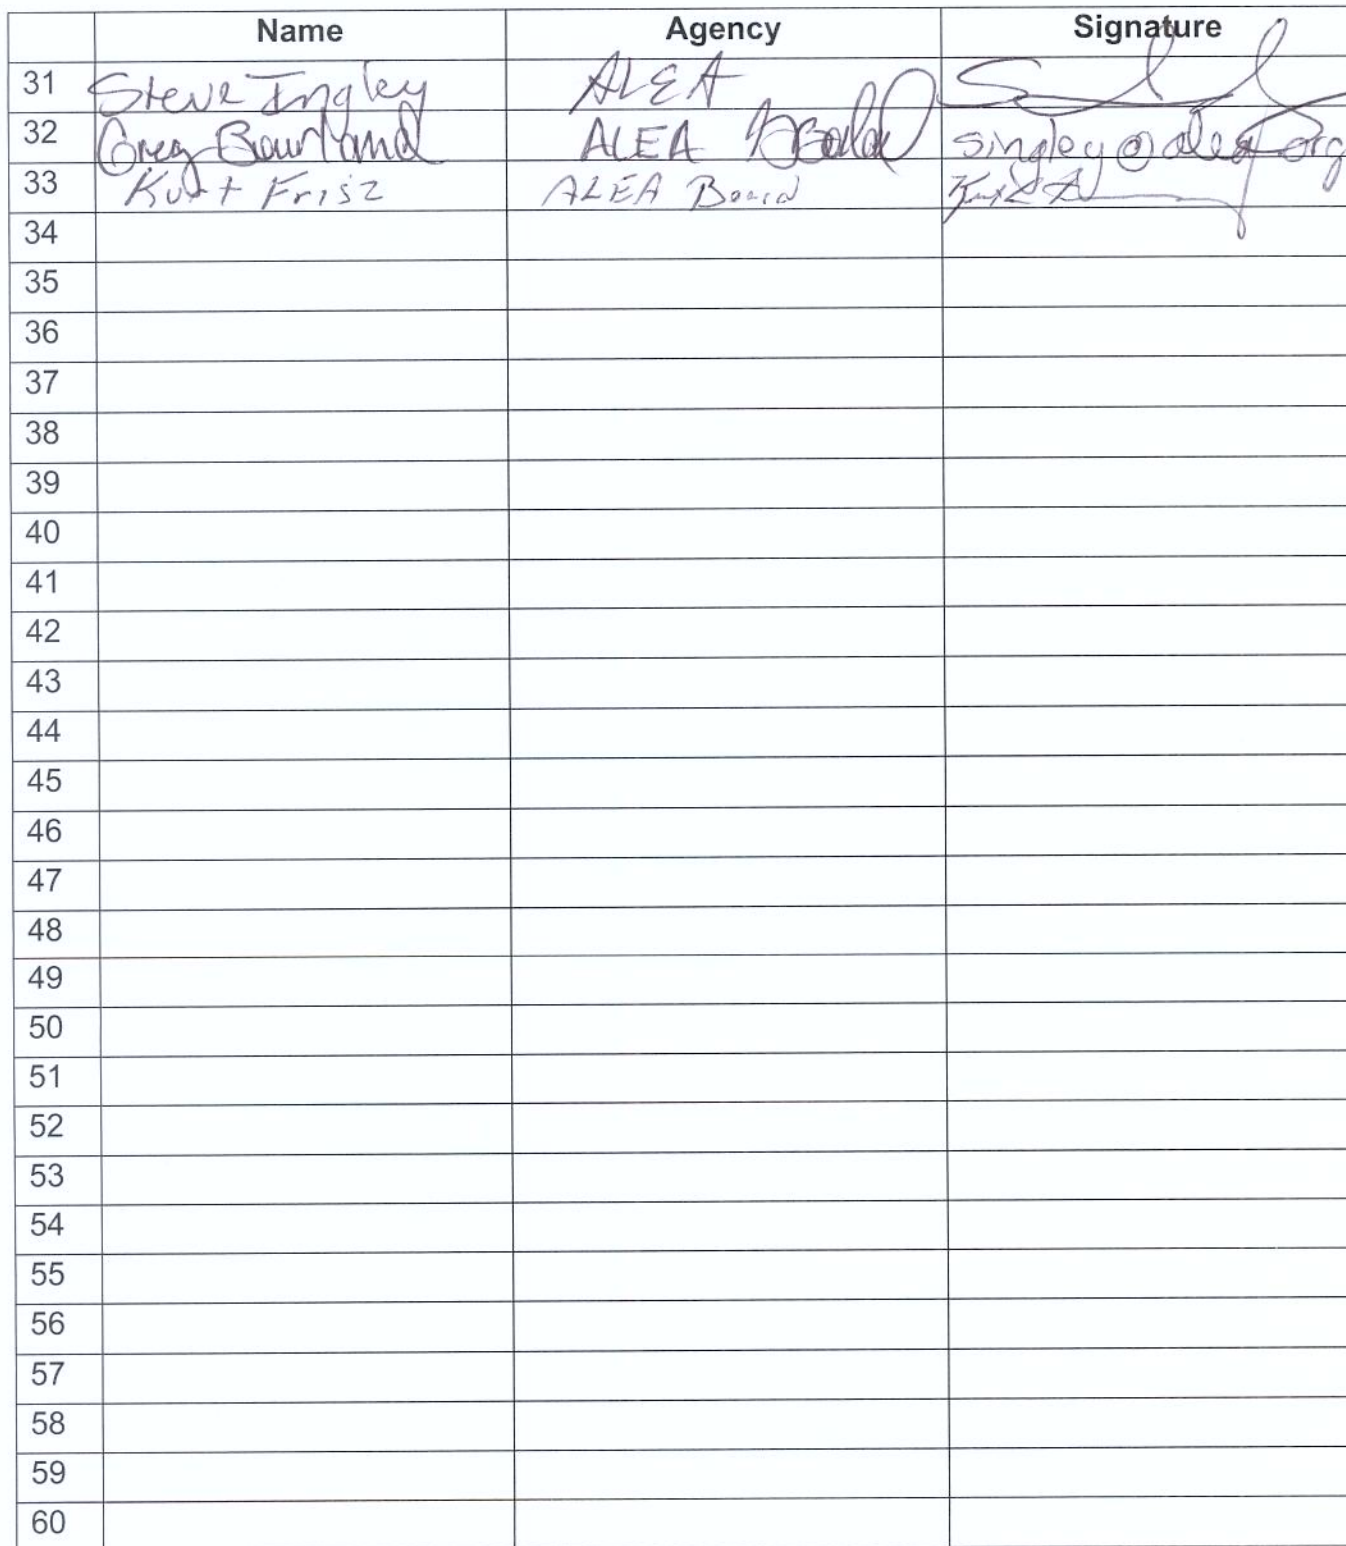 Name Agency Signature
31 Steve Ingley ALEA
32 Greg Bourland ALEA singley@alea.org
33 Kurt Frisz ALEA Board
34
35
36
37
38
39
40
41
42
43
44
45
46
47
48
49
50
51
52
53
54
55
56
57
58
59
60